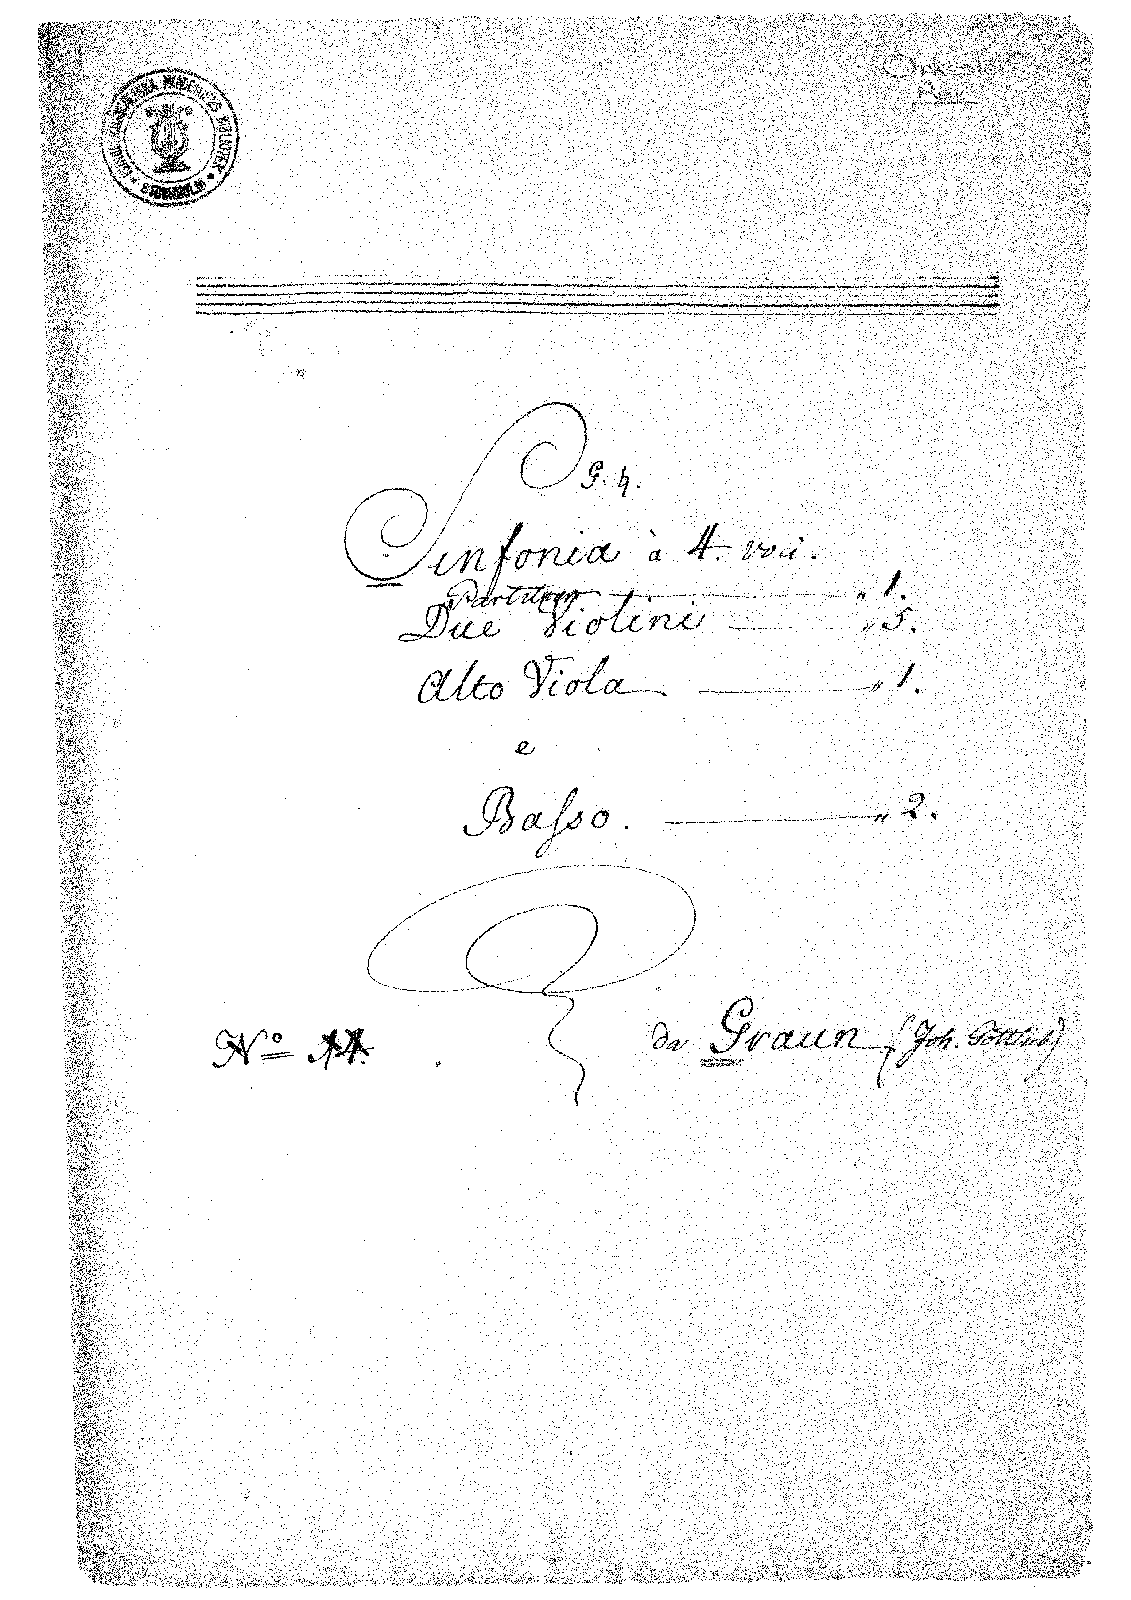 KONGL. MUSIKALISKA AKADEMIENS BIBLIOTEK
STOCKHOLM
G. ♮.
Sinfonia à 4. voci.
Partitura „ 1.
Due Violini „ 5.
Alto Viola „ 1.
e
Basso. „ 2.
No 11.
da Graun (Joh. Gottlieb)